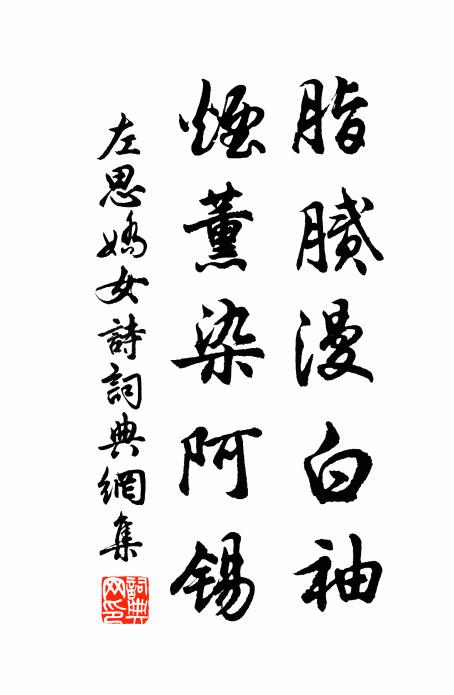 脂膩漫白袖
煙薰染阿錫
左思嬌女詩詞典網集
詞典網印